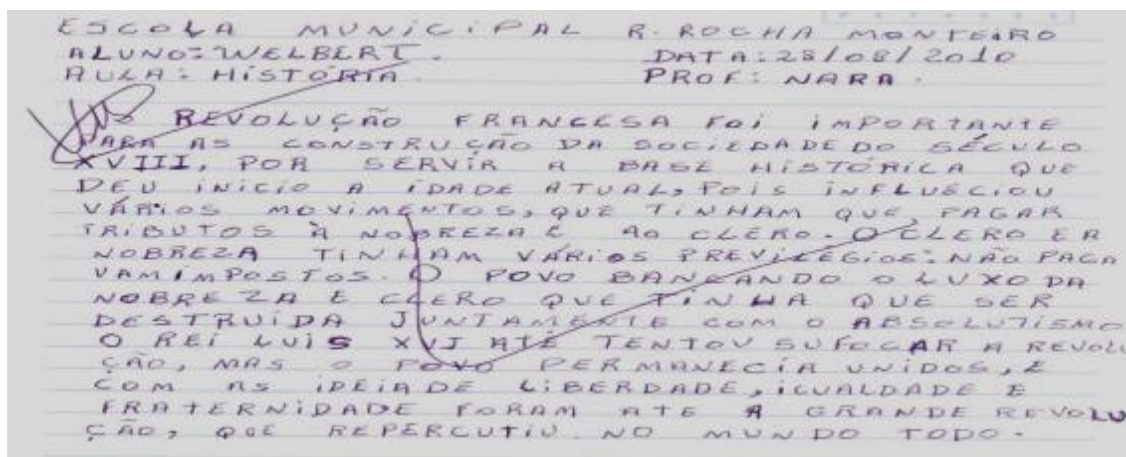 ESCOLA MUNICIPAL R. ROCHA MONTEIRO
ALUNO: WELBERT. DATA: 28/08/2010
AULA: HISTÓRIA PROF: NARA.
REVOLUÇÃO FRANCESA FOI IMPORTANTE
PARA AS CONSTRUÇÃO DA SOCIEDADE DO SÉCULO
XVIII, POR SERVIR A BASE HISTÓRICA QUE
DEU INICIO A IDADE ATUAL, POIS INFLUÊCIOU
VÁRIOS MOVIMENTOS, QUE TINHAM QUE, PAGAR
TRIBUTOS À NOBREZA E AO CLERO. O CLERO E A
NOBREZA TINHAM VÁRIOS PREVILÉGIOS: NÃO PAGA
VAM IMPOSTOS. O POVO BANCANDO O LUXO DA
NOBREZA E CLERO QUE TINHA QUE SER
DESTRUÍDA JUNTAMENTE COM O ABSOLUTISMO
O REI LUIS XVI ATÉ TENTOU SUFOCAR A REVOLU
ÇÃO, MAS O POVO PERMANECIA UNIDOS, E
COM AS IDEIA DE LIBERDADE, IGUALDADE E
FRATERNIDADE FORAM ATE A GRANDE REVOLU
ÇÃO, QUE REPERCUTIU NO MUNDO TODO.